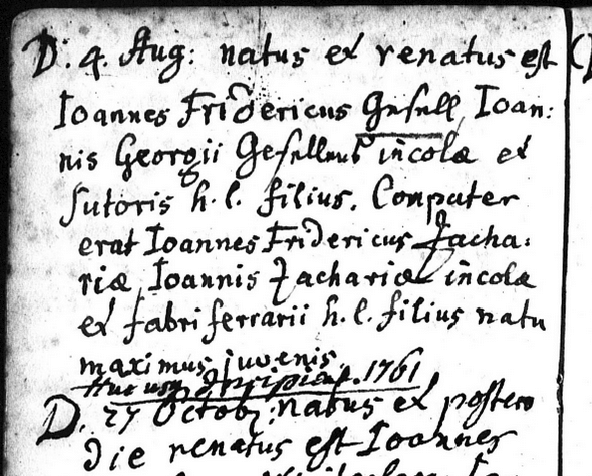 D. 4. Aug: natus et renatus est
Ioannes Fridericus Gesell, Ioan:
nis Georgii Gesellens incolæ et
sutoris h. l. filius. Compater
erat Ioannes Fridericus Zacha:
riæ, Ioannis Zachariæ incolæ
et fabri ferrarii h. l. filius natu
maximus juvenis.
Huc usq 1761
D. 27 Octob: natus et postero
die renatus est Ioannes